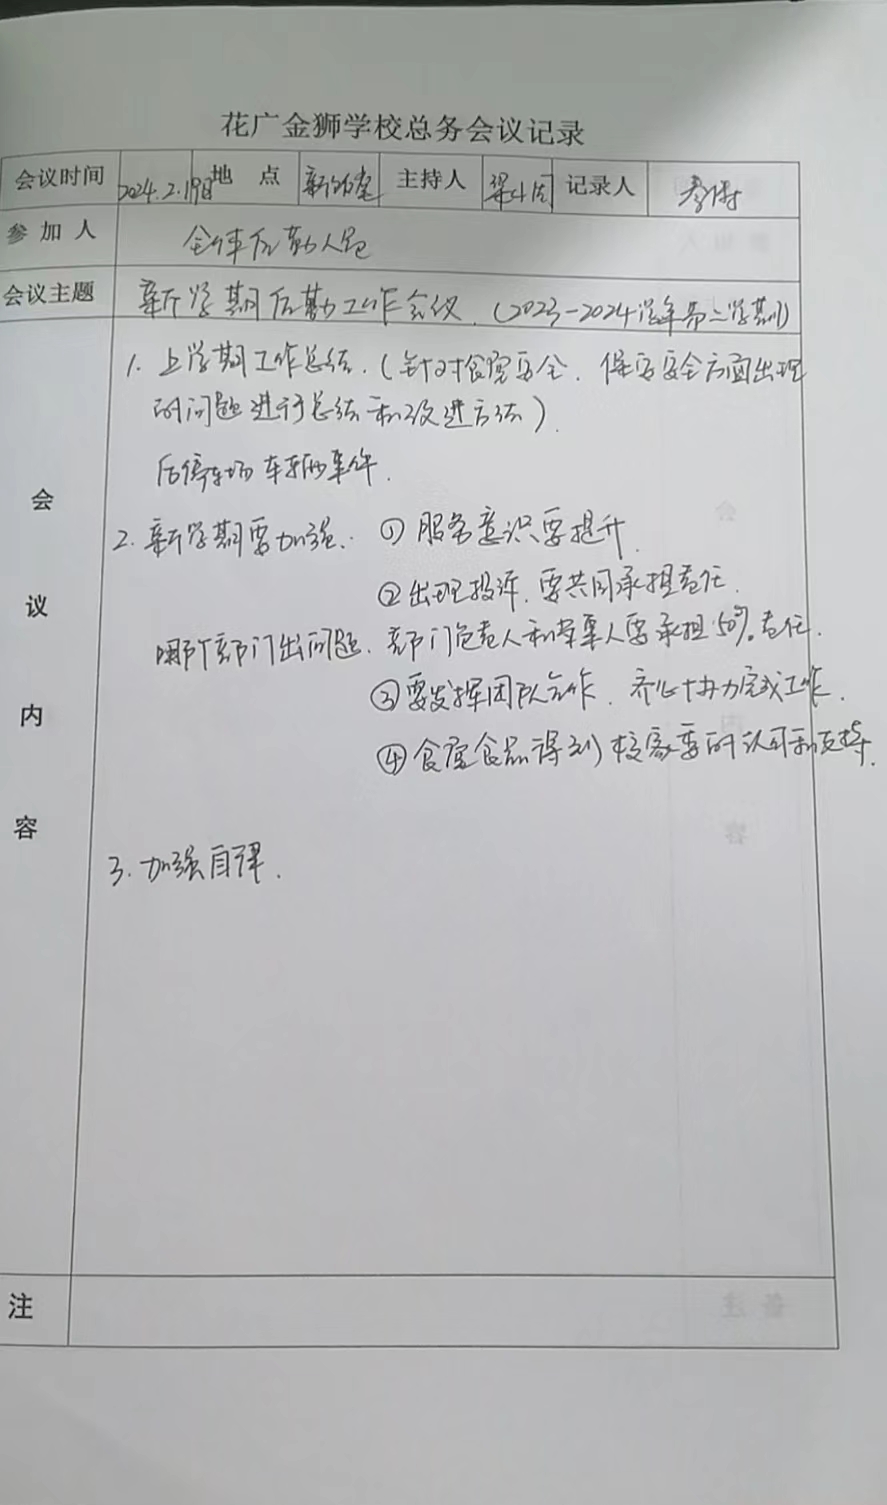 花广金狮学校总务会议记录
会议时间 2024.2.19日 地 点 主持人 记录人
参 加 人 全体后勤人员
会议主题 新学期后勤工作会议.(2023-2024学年第二学期)
会议内容
1. 上学期工作总结.(针对食堂安全.保安安全方面出现
的问题进行总结和改进方法).
后停车场车辆事件.
2. 新学期要加强: ①服务意识要提升.
②出现投诉.要共同承担责任.
哪个部门出问题.部门负责人和当事人要承担50%责任.
③要发挥团队合作.齐心协力完成工作.
④食堂食品得到校家委的认可和支持.
3. 加强自律.
注